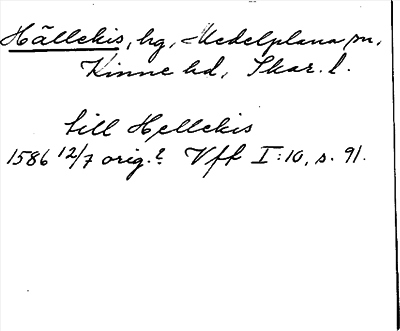 Hällekis, hg, Medelplana sn,
Kinne hd, Skar. l.
till Hellekis
1586 12/7 orig.? Vff I:10, s. 91.